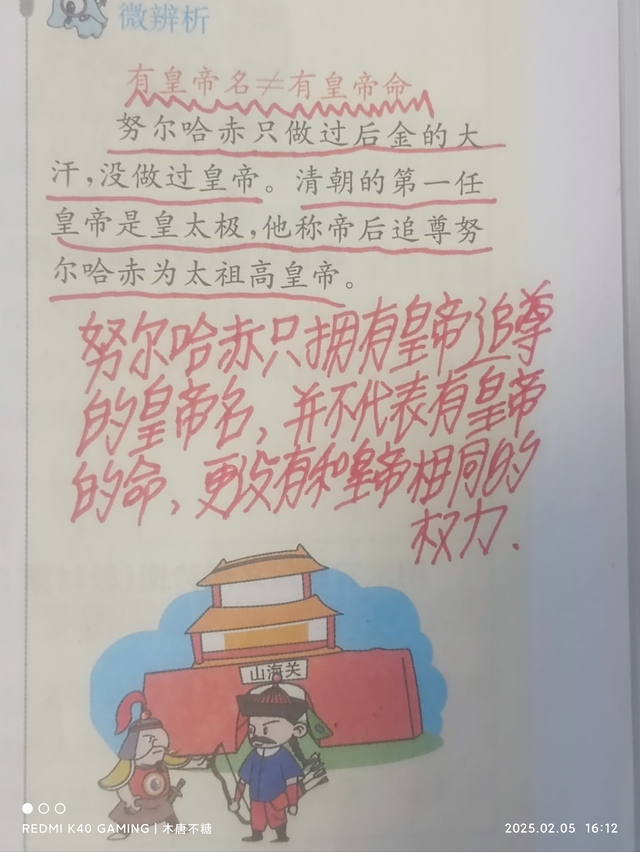 微辨析
有皇帝名≠有皇帝命
努尔哈赤只做过后金的大
汗,没做过皇帝。清朝的第一任
皇帝是皇太极,他称帝后追尊努
尔哈赤为太祖高皇帝。
努尔哈赤只拥有皇帝追尊
的皇帝名,并不代表有皇帝
的命,更没有和皇帝相同的
权力.
山海关
REDMI K40 GAMING | 木唐不糖
2025.02.05 16:12